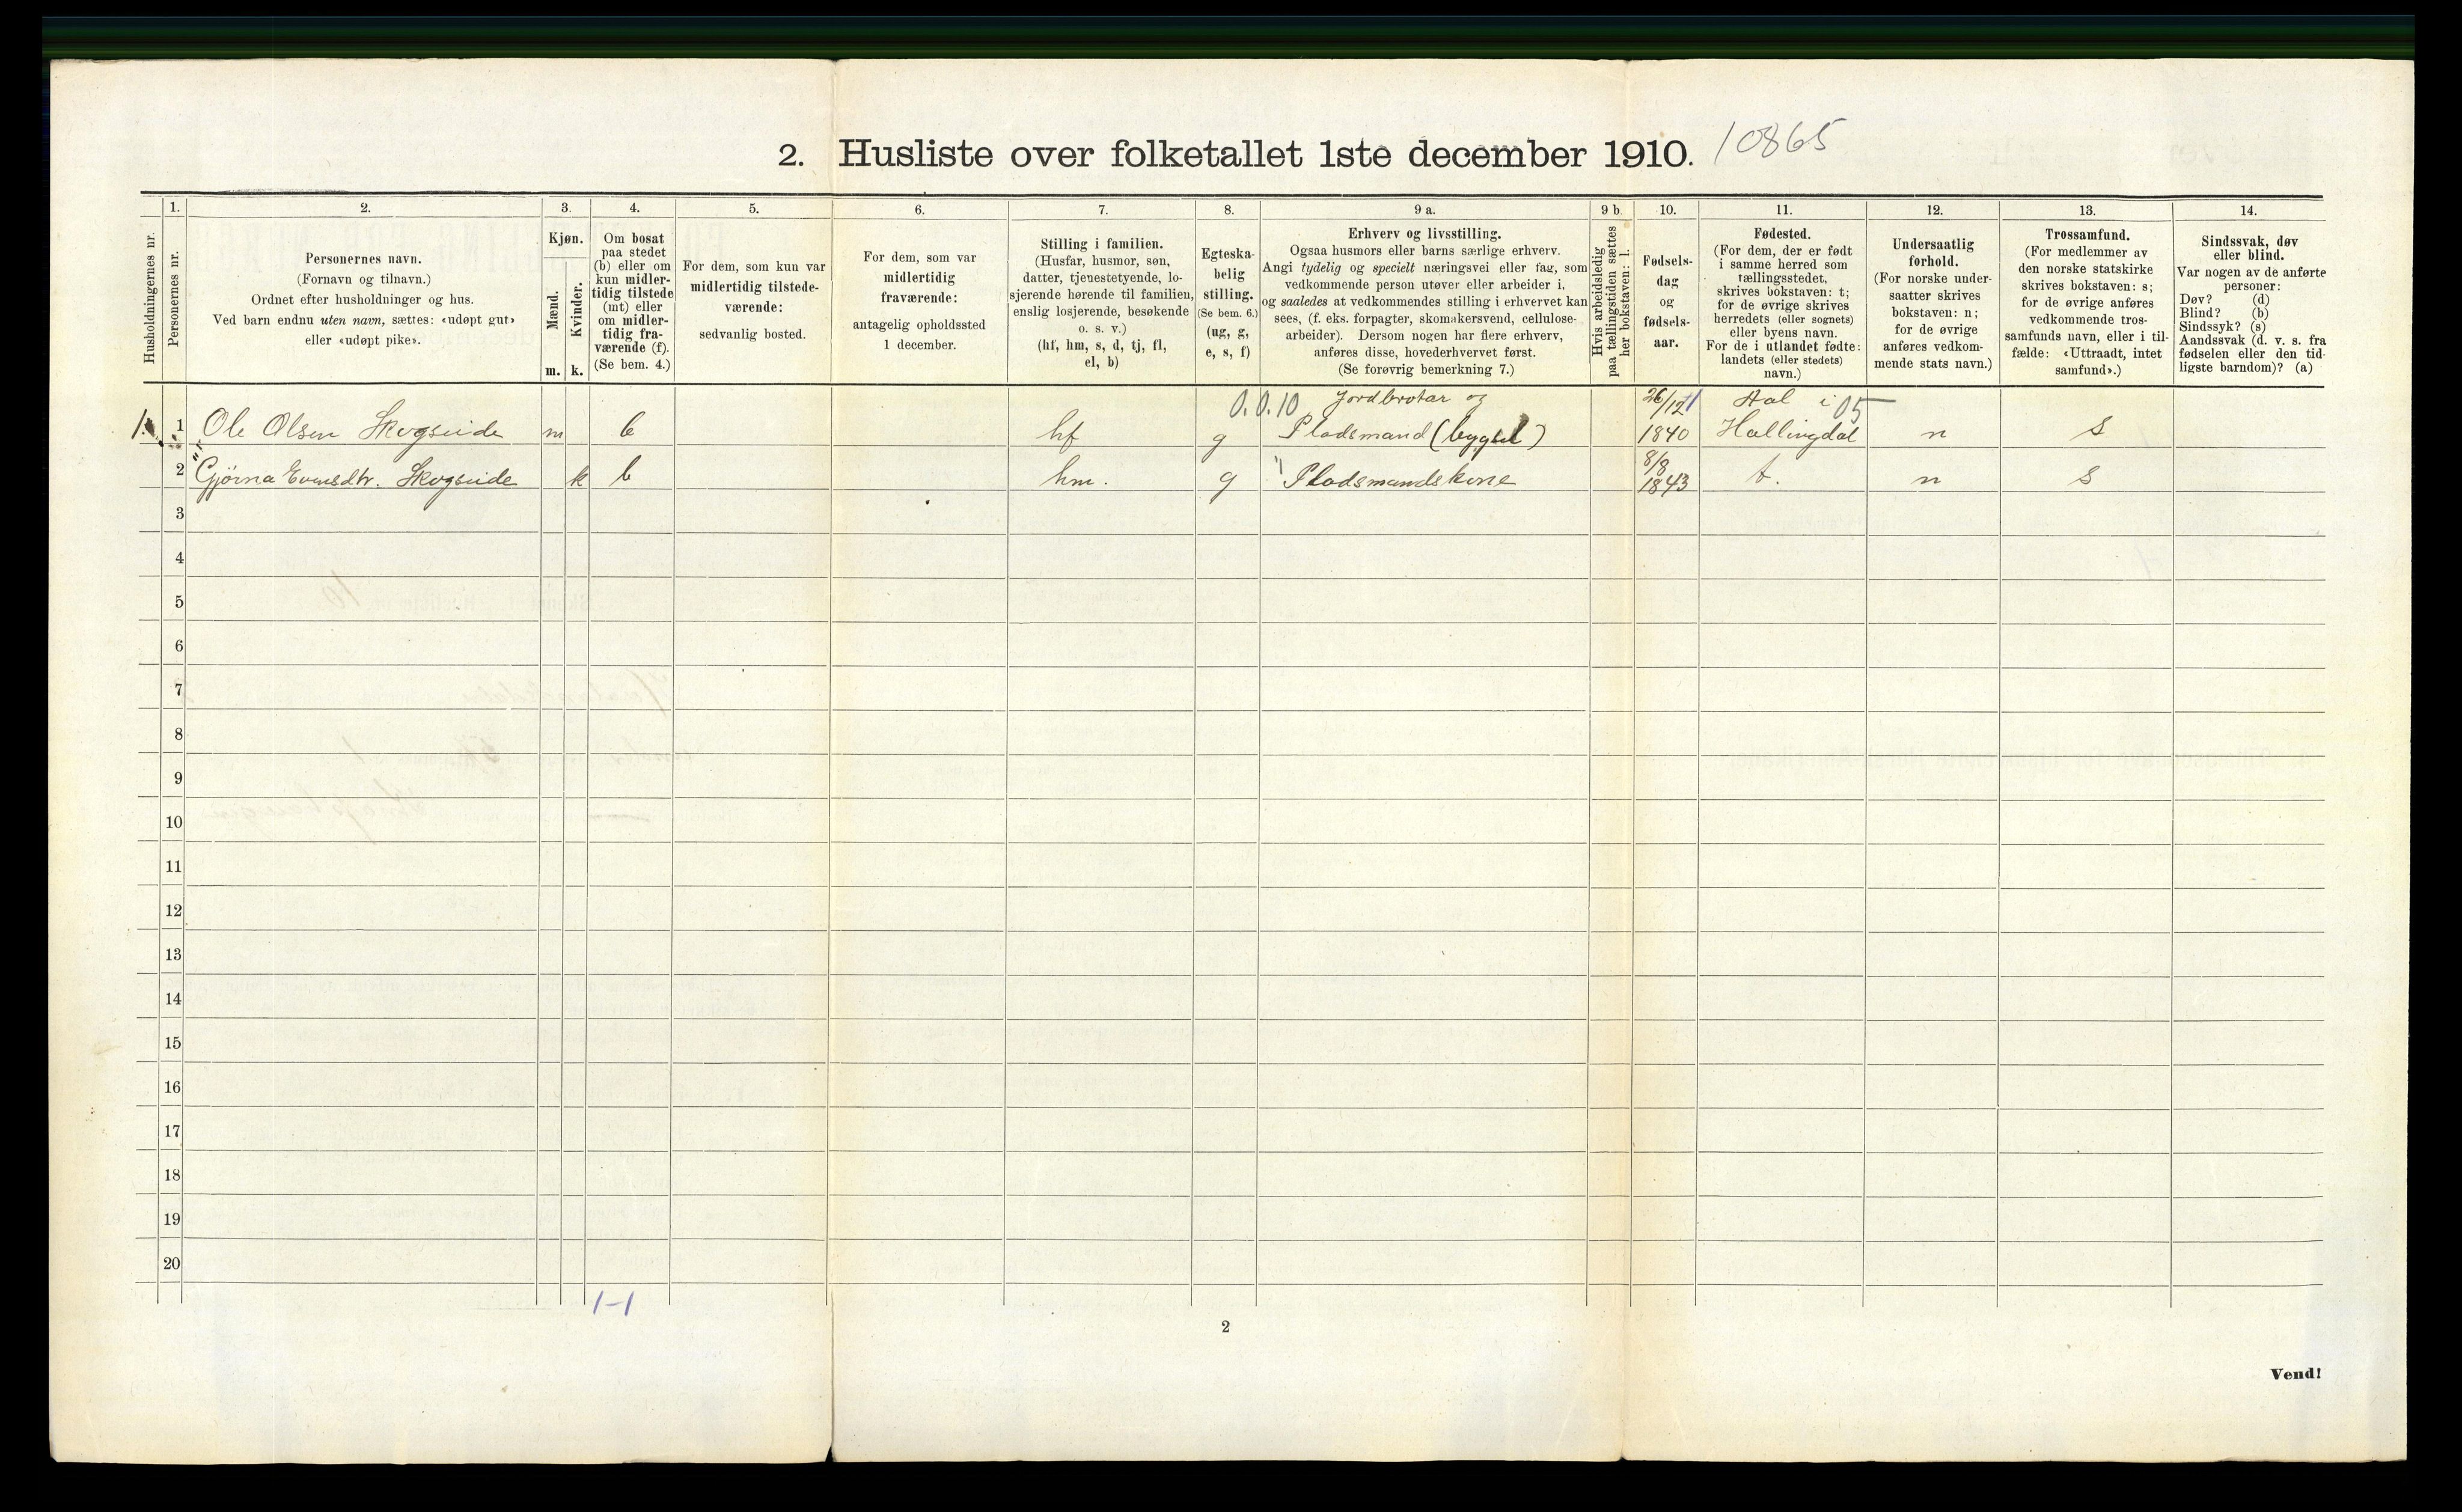 2. Husliste over folketallet 1ste december 1910. 10865
Husholdningernes nr.
1.
Personernes nr.
2.
Personernes navn.
(Fornavn og tilnavn.)
Ordnet efter husholdninger og hus.
Ved barn endnu uten navn, sættes: «udøpt gut»
eller «udøpt pike».
3.
Kjøn.
Mænd.
m.
Kvinder.
k.
4.
Om bosat
paa stedet
(b) eller om
kun midler-
tidig tilstede
(mt) eller
om midler-
tidig fra-
værende (f).
(Se bem. 4.)
5.
For dem, som kun var
midlertidig tilstede-
værende:
sedvanlig bosted.
6.
For dem, som var
midlertidig
fraværende:
antagelig opholdssted
1 december.
7.
Stilling i familien.
(Husfar, husmor, søn,
datter, tjenestetyende, lo-
sjerende hørende til familien,
enslig losjerende, besøkende
o. s. v.)
(hf, hm, s, d, tj, fl,
el, b)
8.
Egteska-
belig
stilling.
(Se bem. 6.)
(ug, g,
e, s, f)
9 a.
Erhverv og livsstilling.
Ogsaa husmors eller barns særlige erhverv.
Angi tydelig og specielt næringsvei eller fag, som
vedkommende person utøver eller arbeider i,
og saaledes at vedkommendes stilling i erhvervet kan
sees, (f. eks. forpagter, skomakersvend, cellulose-
arbeider). Dersom nogen har flere erhverv,
anføres disse, hovederhvervet først.
(Se forøvrig bemerkning 7.)
9 b.
Hvis arbeidsledig
paa tællingstiden sættes
her bokstaven: l.
10.
Fødsels-
dag
og
fødsels-
aar.
11.
Fødested.
(For dem, der er født
i samme herred som
tællingsstedet,
skrives bokstaven: t;
for de øvrige skrives
herredets (eller sognets)
eller byens navn.
For de i utlandet fødte:
landets (eller stedets)
navn.)
12.
Undersaatlig
forhold.
(For norske under-
saatter skrives
bokstaven: n;
for de øvrige
anføres vedkom-
mende stats navn.)
13.
Trossamfund.
(For medlemmer av
den norske statskirke
skrives bokstaven: s;
for de øvrige anføres
vedkommende tros-
samfunds navn, eller i til-
fælde: «Uttraadt, intet
samfund».)
14.
Sindssvak, døv
eller blind.
Var nogen av de anførte
personer:
Døv? (d)
Blind? (b)
Sindssyk? (s)
Aandssvak (d. v. s. fra
fødselen eller den tid-
ligste barndom)? (a)
0.0.10 Jordbrotar og 26/12 Aal i 05
1. 1 Ole Olsen Skogseide m b hf g Pladsmand (bygsel) 1840 Hallingdal n s
8/8
2 Gjørna Evensdtr. Skogseide k b hm. g " Pladsmandskone 1843 t. n s
3
4
5
6
7
8
9
10
11
12
13
14
15
16
17
18
19
20
1-1
2
Vend!